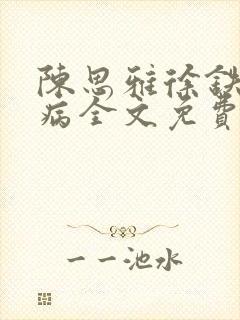 陳思雅徐鈇
病全文免費
一一池水